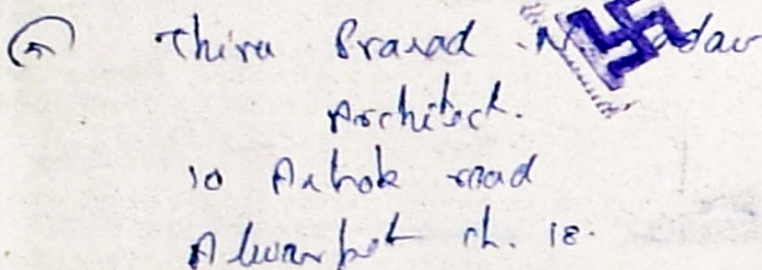 Thiru Prasad .N
Architect.
10 Ashok road
Alwarpet ch. 18.